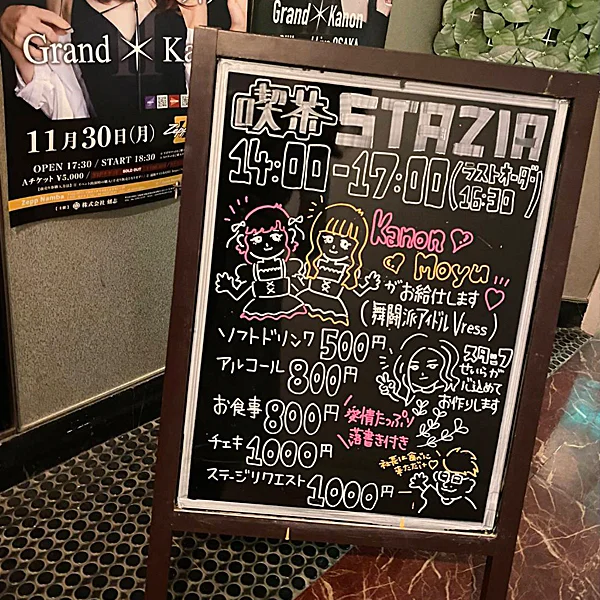 Grand * Kanon
Grand * Ka
11月30日(月)
OPEN 17:30 / START 18:30
Aチケット ¥5,000 /
SOLD OUT
Zepp Namba
喫茶 STAZIA
14:00-17:00(ラストオーダー16:30)
Kanon
& Moyu !!!
がお給仕します
(舞闘派アイドルVress)
ソフトドリンク 500円
アルコール 800円
お食事 800円
スタッフ
せいらが
心込めて
お作りします
愛情たっぷり
落書き付き
チェキ 1000円
ステージリクエスト 1000円
社長は食べに
来ただけ